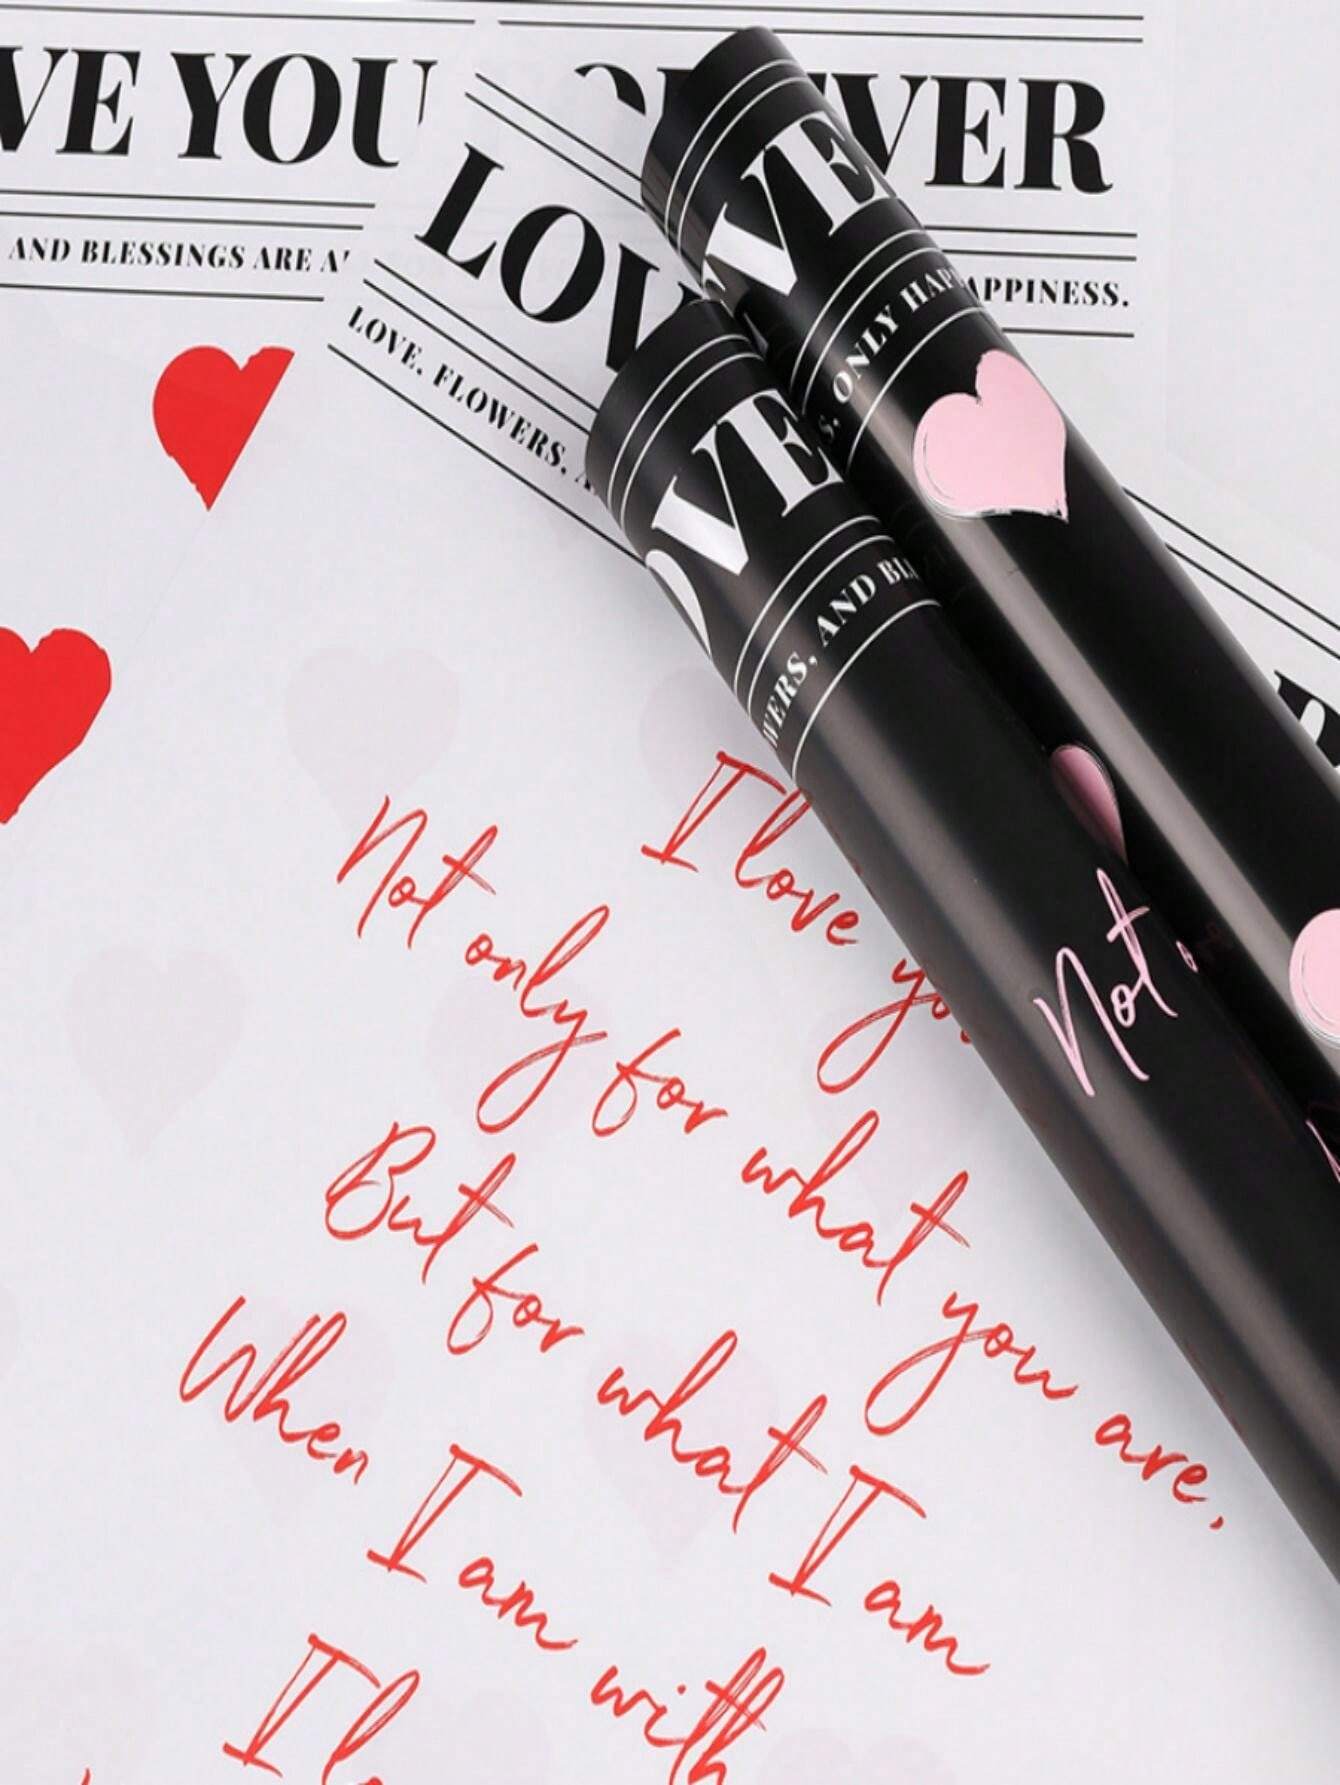 VE YOU
LOV
EVER
OVE
AND BLESSINGS ARE A
LOVE. FLOWERS. A
APPINESS.
S. ONLY HAP
OVE
WERS, AND BL
I love yo
Not only for what you are.
But for what I am
When I am with
I lo
Not o